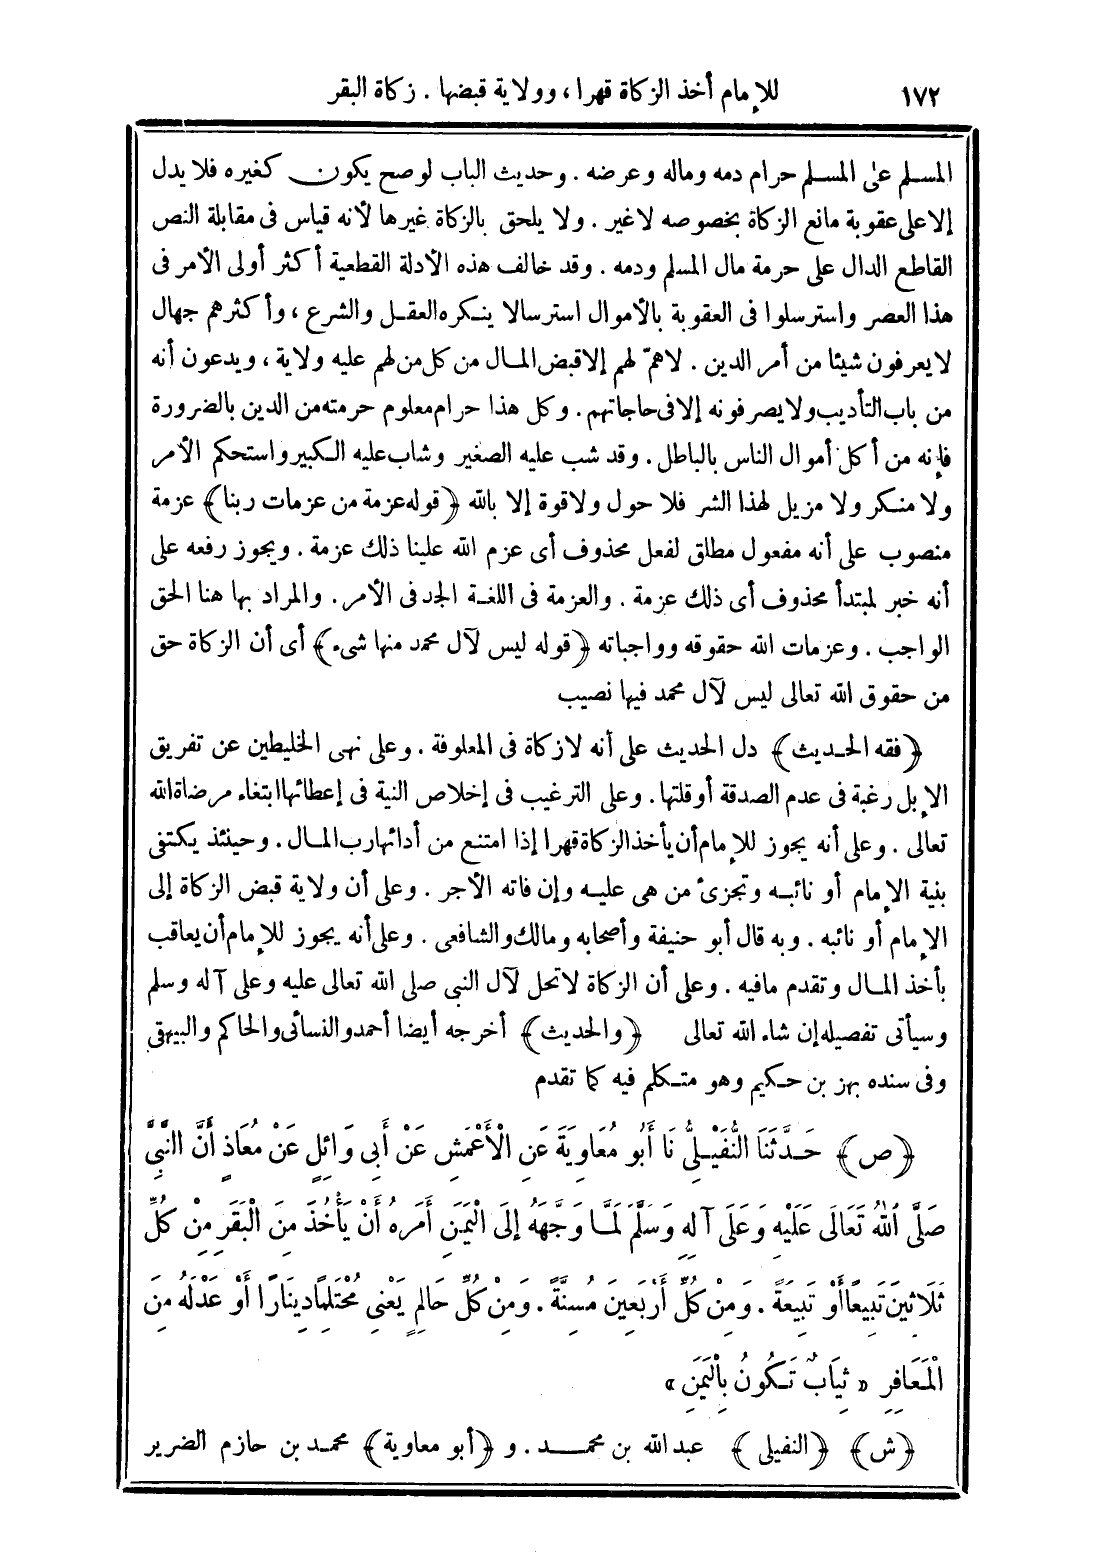 ١٧٢ للإمام أخذ الزكاة قهرا ، وولاية قبضها . زكاة البقر
المسلم على المسلم حرام دمه وماله وعرضه . وحديث الباب لوصح يكون كغيره فلا يدل
إلا على عقوبة مانع الزكاة بخصوصه لا غير . ولا يلحق بالزكاة غيرها لأنه قياس فى مقابلة النص
القاطع الدال على حرمة مال المسلم ودمه . وقد خالف هذه الأدلة القطعية أكثر أولى الأمر فى
هذا العصر واسترسلوا فى العقوبة بالأموال استرسالا ينكره العقل والشرع ، وأكثرهم جهال
لا يعرفون شيئا من أمر الدين . لا همّ لهم إلا قبض المال من كل من لهم عليه ولاية ، ويدعون أنه
من باب التأديب ولا يصرفونه إلا فى حاجاتهم . وكل هذا حرام معلوم حرمته من الدين بالضرورة
فإنه من أكل أموال الناس بالباطل . وقد شب عليه الصغير وشاب عليه الكبير واستحكم الأمر
ولا منكر ولا مزيل لهذا الشر فلا حول ولا قوة إلا بالله ﴿قوله عزمة من عزمات ربنا﴾ عزمة
منصوب على أنه مفعول مطلق لفعل محذوف أى عزم الله علينا ذلك عزمة . ويجوز رفعه على
أنه خبر لمبتدأ محذوف أى ذلك عزمة . والعزمة فى اللغة الجد فى الأمر . والمراد بها هنا الحق
الواجب . وعزمات الله حقوقه وواجباته ﴿قوله ليس لآل محمد منها شىء﴾ أى أن الزكاة حق
من حقوق الله تعالى ليس لآل محمد فيها نصيب
﴿فقه الحديث﴾ دل الحديث على أنه لا زكاة فى المعلوفة . وعلى نهى الخليطين عن تفريق
الإبل رغبة فى عدم الصدقة أو قلتها . وعلى الترغيب فى إخلاص النية فى إعطائها ابتغاء مرضاة الله
تعالى . وعلى أنه يجوز للإمام أن يأخذ الزكاة قهرا إذا امتنع من أدائها رب المال . وحينئذ يكتفى
بنية الإمام أو نائبه وتجزئ من هى عليه وإن فاته الأجر . وعلى أن ولاية قبض الزكاة إلى
الإمام أو نائبه . وبه قال أبو حنيفة وأصحابه ومالك والشافعى . وعلى أنه يجوز للإمام أن يعاقب
بأخذ المال وتقدم مافيه . وعلى أن الزكاة لا تحل لآل النبى صلى الله تعالى عليه وعلى آله وسلم
وسيأتى تفصيله إن شاء الله تعالى ﴿والحديث﴾ أخرجه أيضا أحمد والنسائى والحاكم والبيهقى
وفى سنده بهز بن حكيم وهو متكلم فيه كما تقدم
﴿ص﴾ حَدَّثَنَا النُّفَيْلِىُّ نَا أَبُو مُعَاوِيَةَ عَنِ الْأَعْمَشِ عَنْ أَبِى وَائِلٍ عَنْ مُعَاذٍ أَنَّ النَّبِىَّ
صَلَّى اللهُ تَعَالَى عَلَيْهِ وَعَلَى آلِهِ وَسَلَّمَ لَمَّا وَجَّهَهُ إِلَى الْيَمَنِ أَمَرهُ أَنْ يَأْخُذَ مِنَ الْبَقَرِ مِنْ كُلِّ
ثَلَاثِينَ تَبِيعًا أَوْ تَبِيعَةً . وَمِنْ كُلِّ أَرْبَعِينَ مُسِنَّةً . وَمِنْ كُلِّ حَالِمٍ يَعْنِى مُحْتَلِمًا دِينَارًا أَوْ عَدْلَهُ مِنَ
الْمَعَافِرِ «ثِيَابٌ تَكُونُ بِالْيَمَنِ»
﴿ش﴾ ﴿النفيلى﴾ عبد الله بن محمد . و ﴿أبو معاوية﴾ محمد بن حازم الضرير